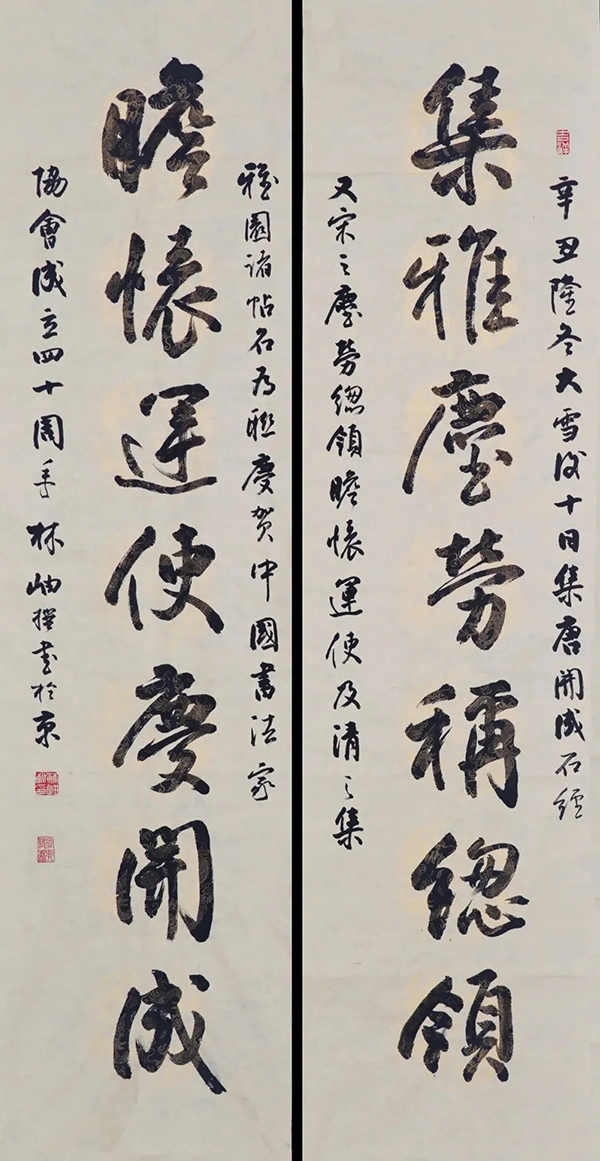 辛丑隆冬大雪後十日集唐開成石經
集雅塵勞稱總領
又宋之塵勞總領瞻懷運使及清之集
雅園諸帖名為聯慶賀中國書法家
瞻懷運使慶開成
協會成立四十周年林岫撰書於京